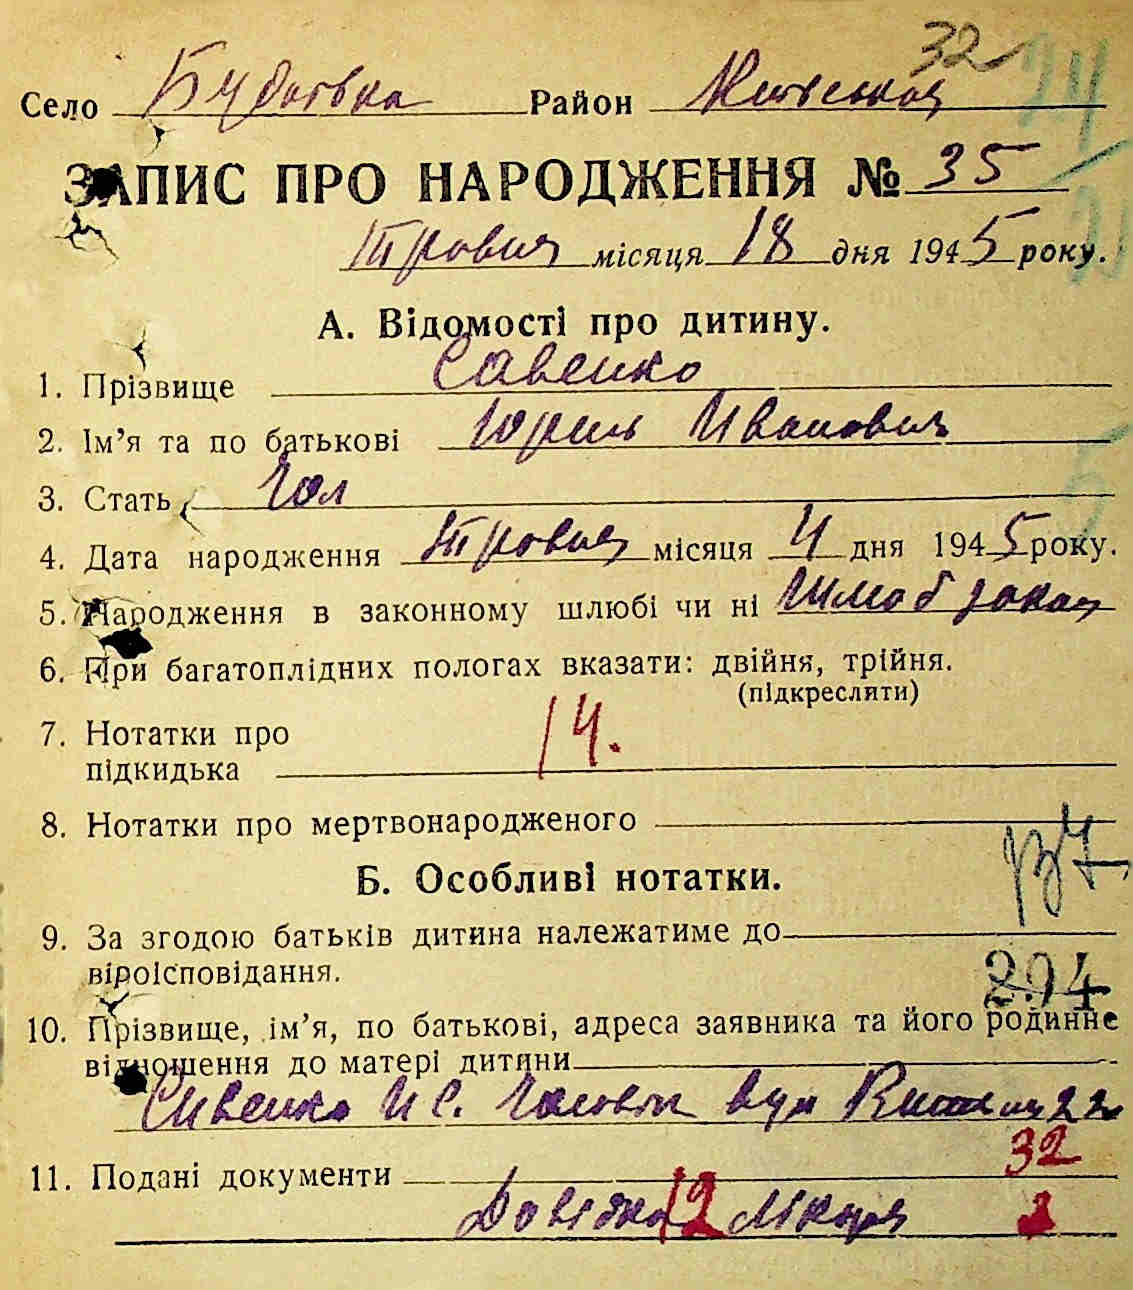 32
Село Будаївка Район Київський
ЗАПИС ПРО НАРОДЖЕННЯ № 35
Травня місяця 18 дня 1945 року.
А. Відомості про дитину.
1. Прізвище Савенко
2. Ім'я та по батькові Юрий Иванович
3. Стать Чол
4. Дата народження Травня місяця 4 дня 1945 року.
5. Народження в законному шлюбі чи ні Шлюб закон
6. При багатоплідних пологах вказати: двійня, трійня.
(підкреслити)
7. Нотатки про
підкидька 14.
8. Нотатки про мертвонародженого
Б. Особливі нотатки.
9. За згодою батьків дитина належатиме до
віроісповідання.
294
10. Прізвище, ім'я, по батькові, адреса заявника та його родинне
відношення до матері дитини
Савенко И С. Чоловік вул 22
32
11. Подані документи
Довідка 12 лікаря 2